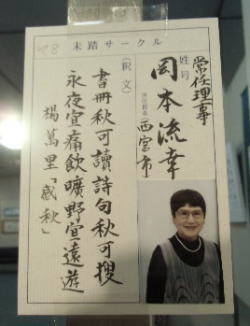 28
未踏サークル
常任理事
姓号
岡本流幸
西宮市
(釈文)
書冊秋可讀詩句秋可搜
永夜宜痛飲曠野宜遠遊
楊萬里「感秋」